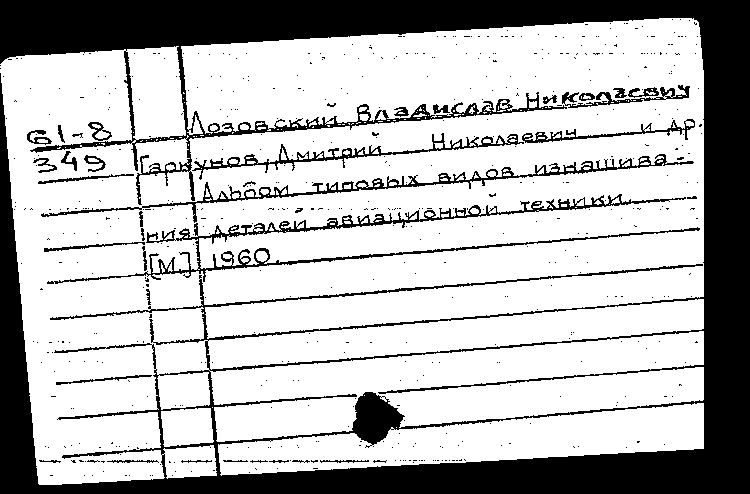 61-8 Лозовский, Владислав Николаевич
349 Гаркунов, Дмитрий Николаевич и др.
Альбом типовых видов изнашива-
ния деталей авиационной техники.
[М.], 1960.